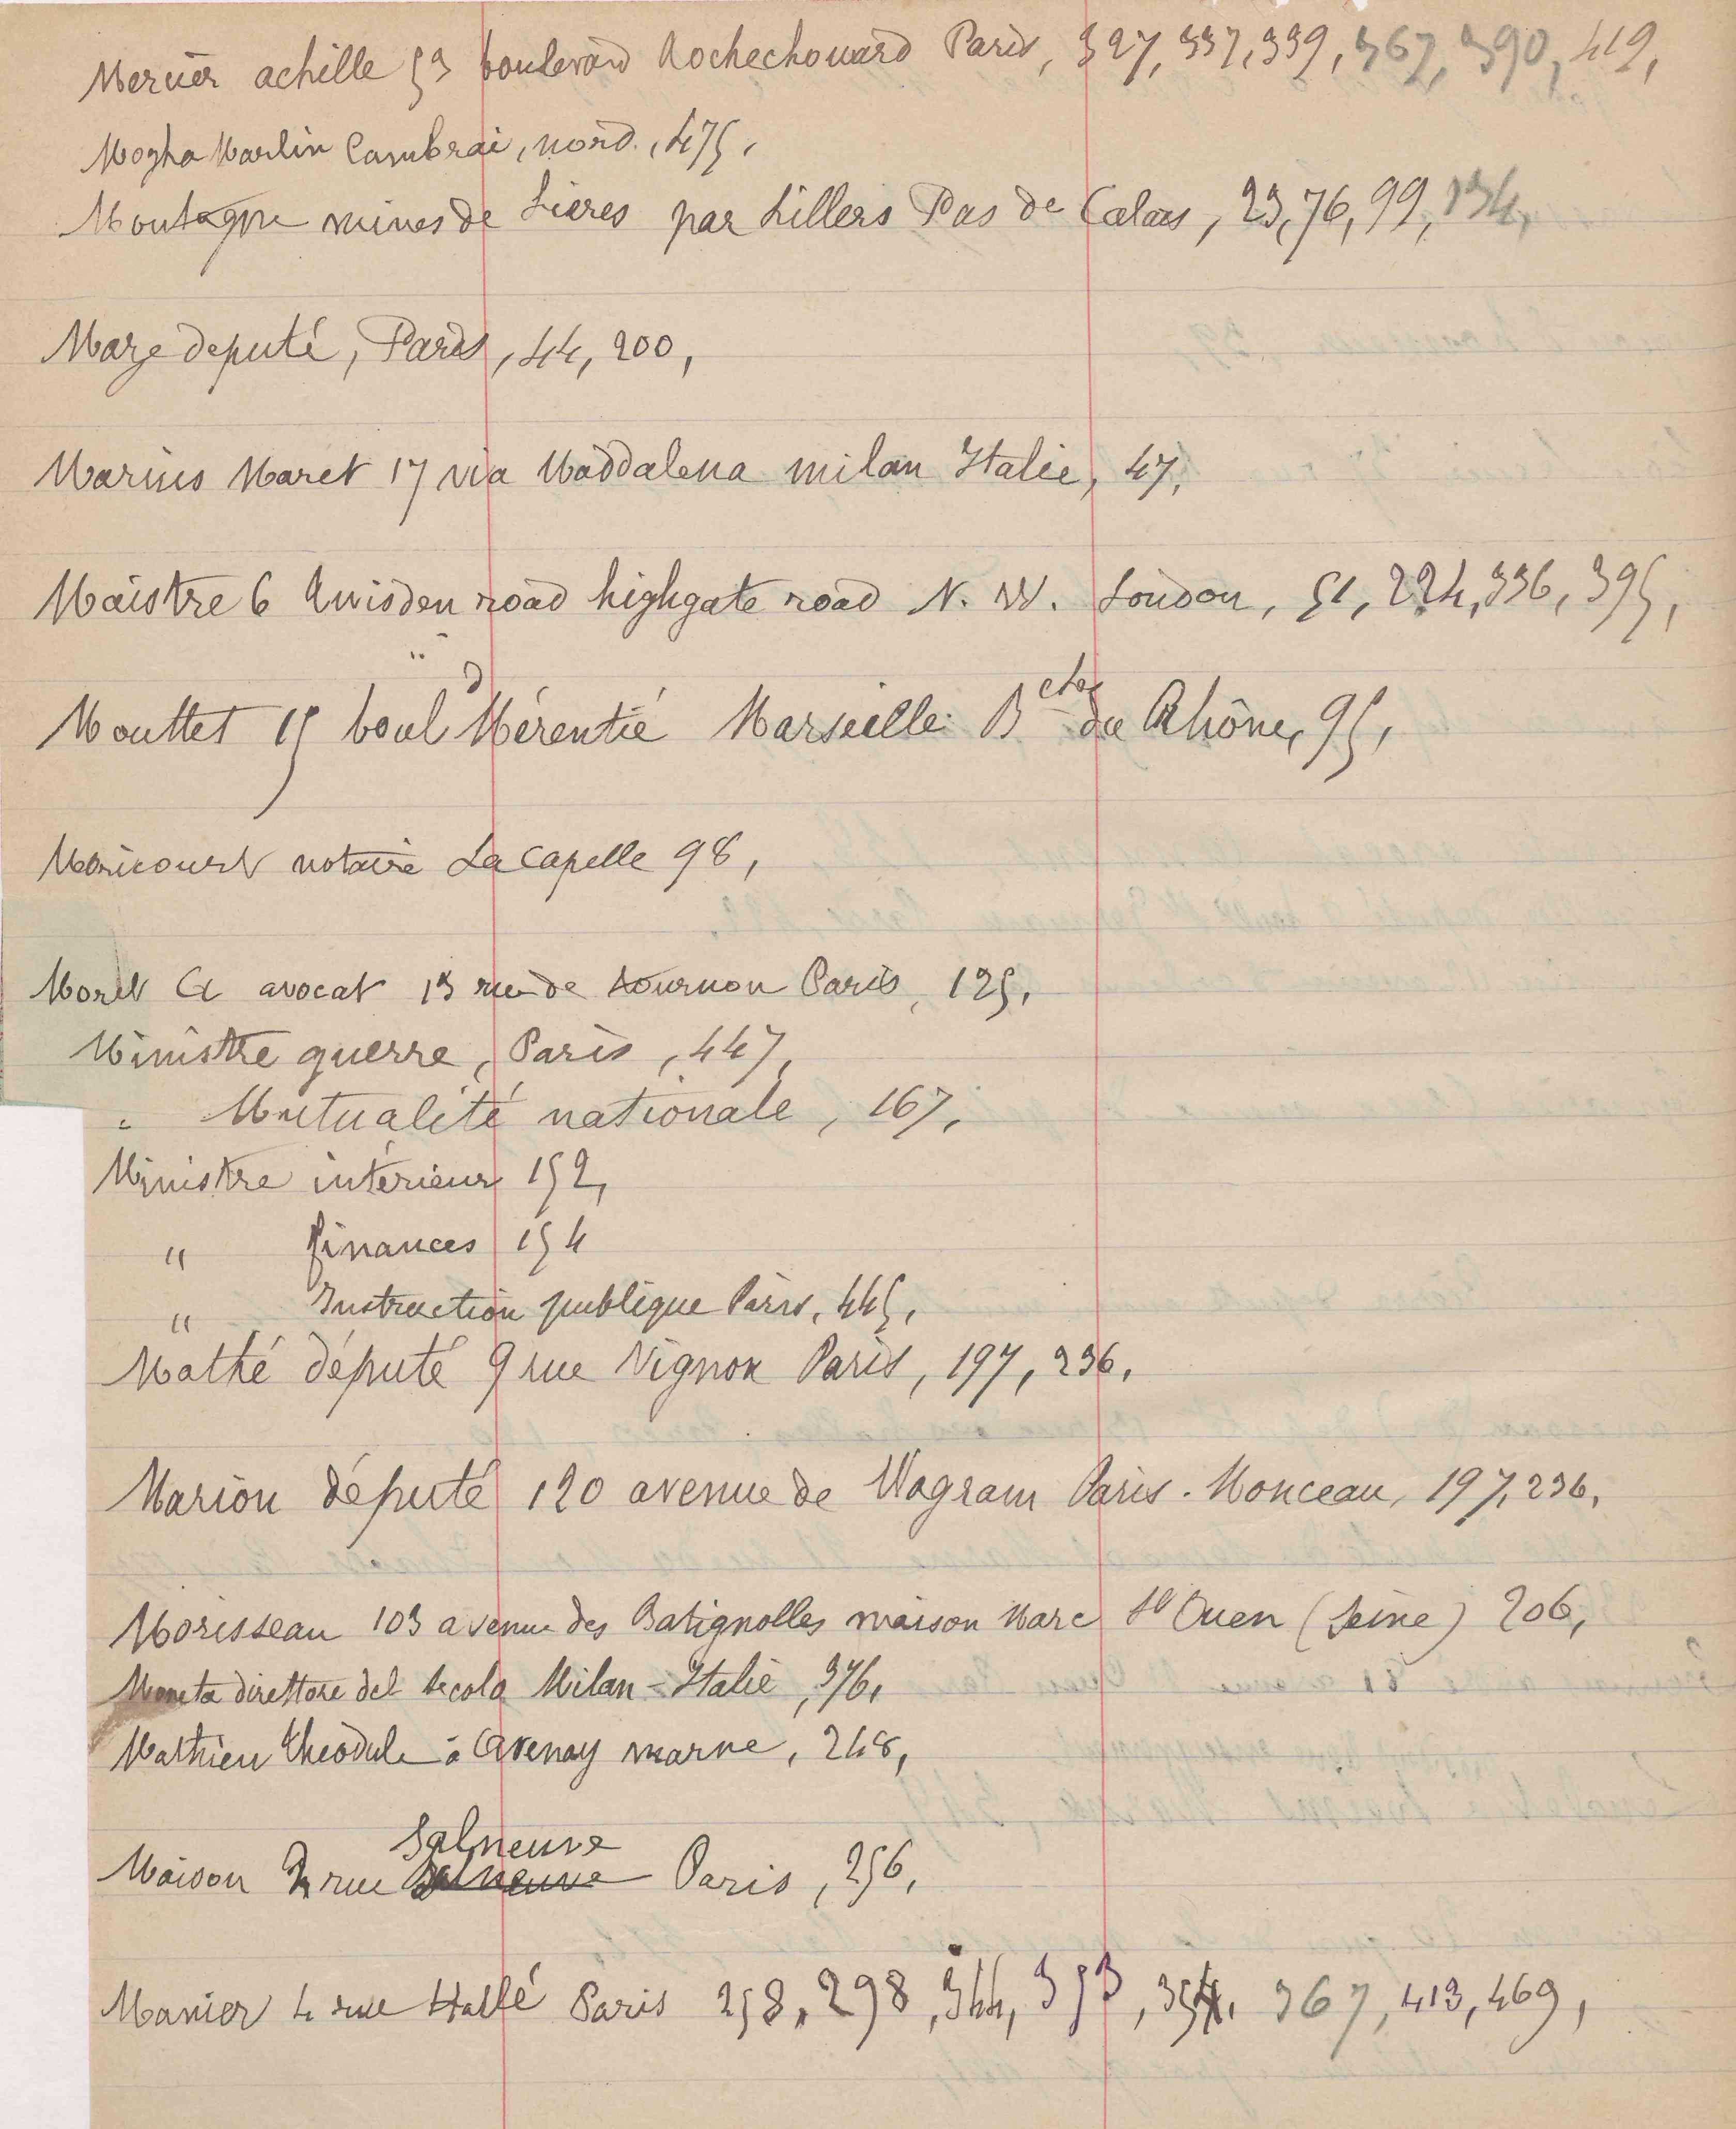 Mercier achille 53 boulevard Rochechouard Paris, 327, 337, 339, 367, 390, 419,
Mogha Marlin Cambrai, nord, 475,
Montagne mines de Lières par Lillers Pas de Calais, 23, 76, 99, 134,
Maze deputé, Paris, 44, 200,
Marius Maret 17 via Maddalena milan Italie, 47,
Maistre 6 Quisden road highgate road N. W. London, 51, 224, 336, 395,
Mouttet 15 boul d Mérentié Marseille B ches du Rhône, 95,
Moricourt notaire La Capelle 98,
Morel A avocat 13 rue de tournon Paris, 125,
Ministre guerre, Paris, 447,
" Mutualité nationale, 167,
Ministre intérieur 152,
" finances 154
" Instruction publique Paris, 445,
Mathé député 9 rue Vignon Paris, 197, 236,
Marion député 120 avenue de Wagram Paris. Monceau, 197, 236,
Morisseau 103 avenue des Batignolles maison Marc St Ouen (Seine) 206,
Moneta direttore del Secolo Milan - Italie, 376,
Mathieu Théodule à Avenay marne, 248,
Salneuve
Maison rue Paris, 256,
Manier 4 rue Hallé Paris 258, 298, 344, 353, 354, 367, 413, 469,